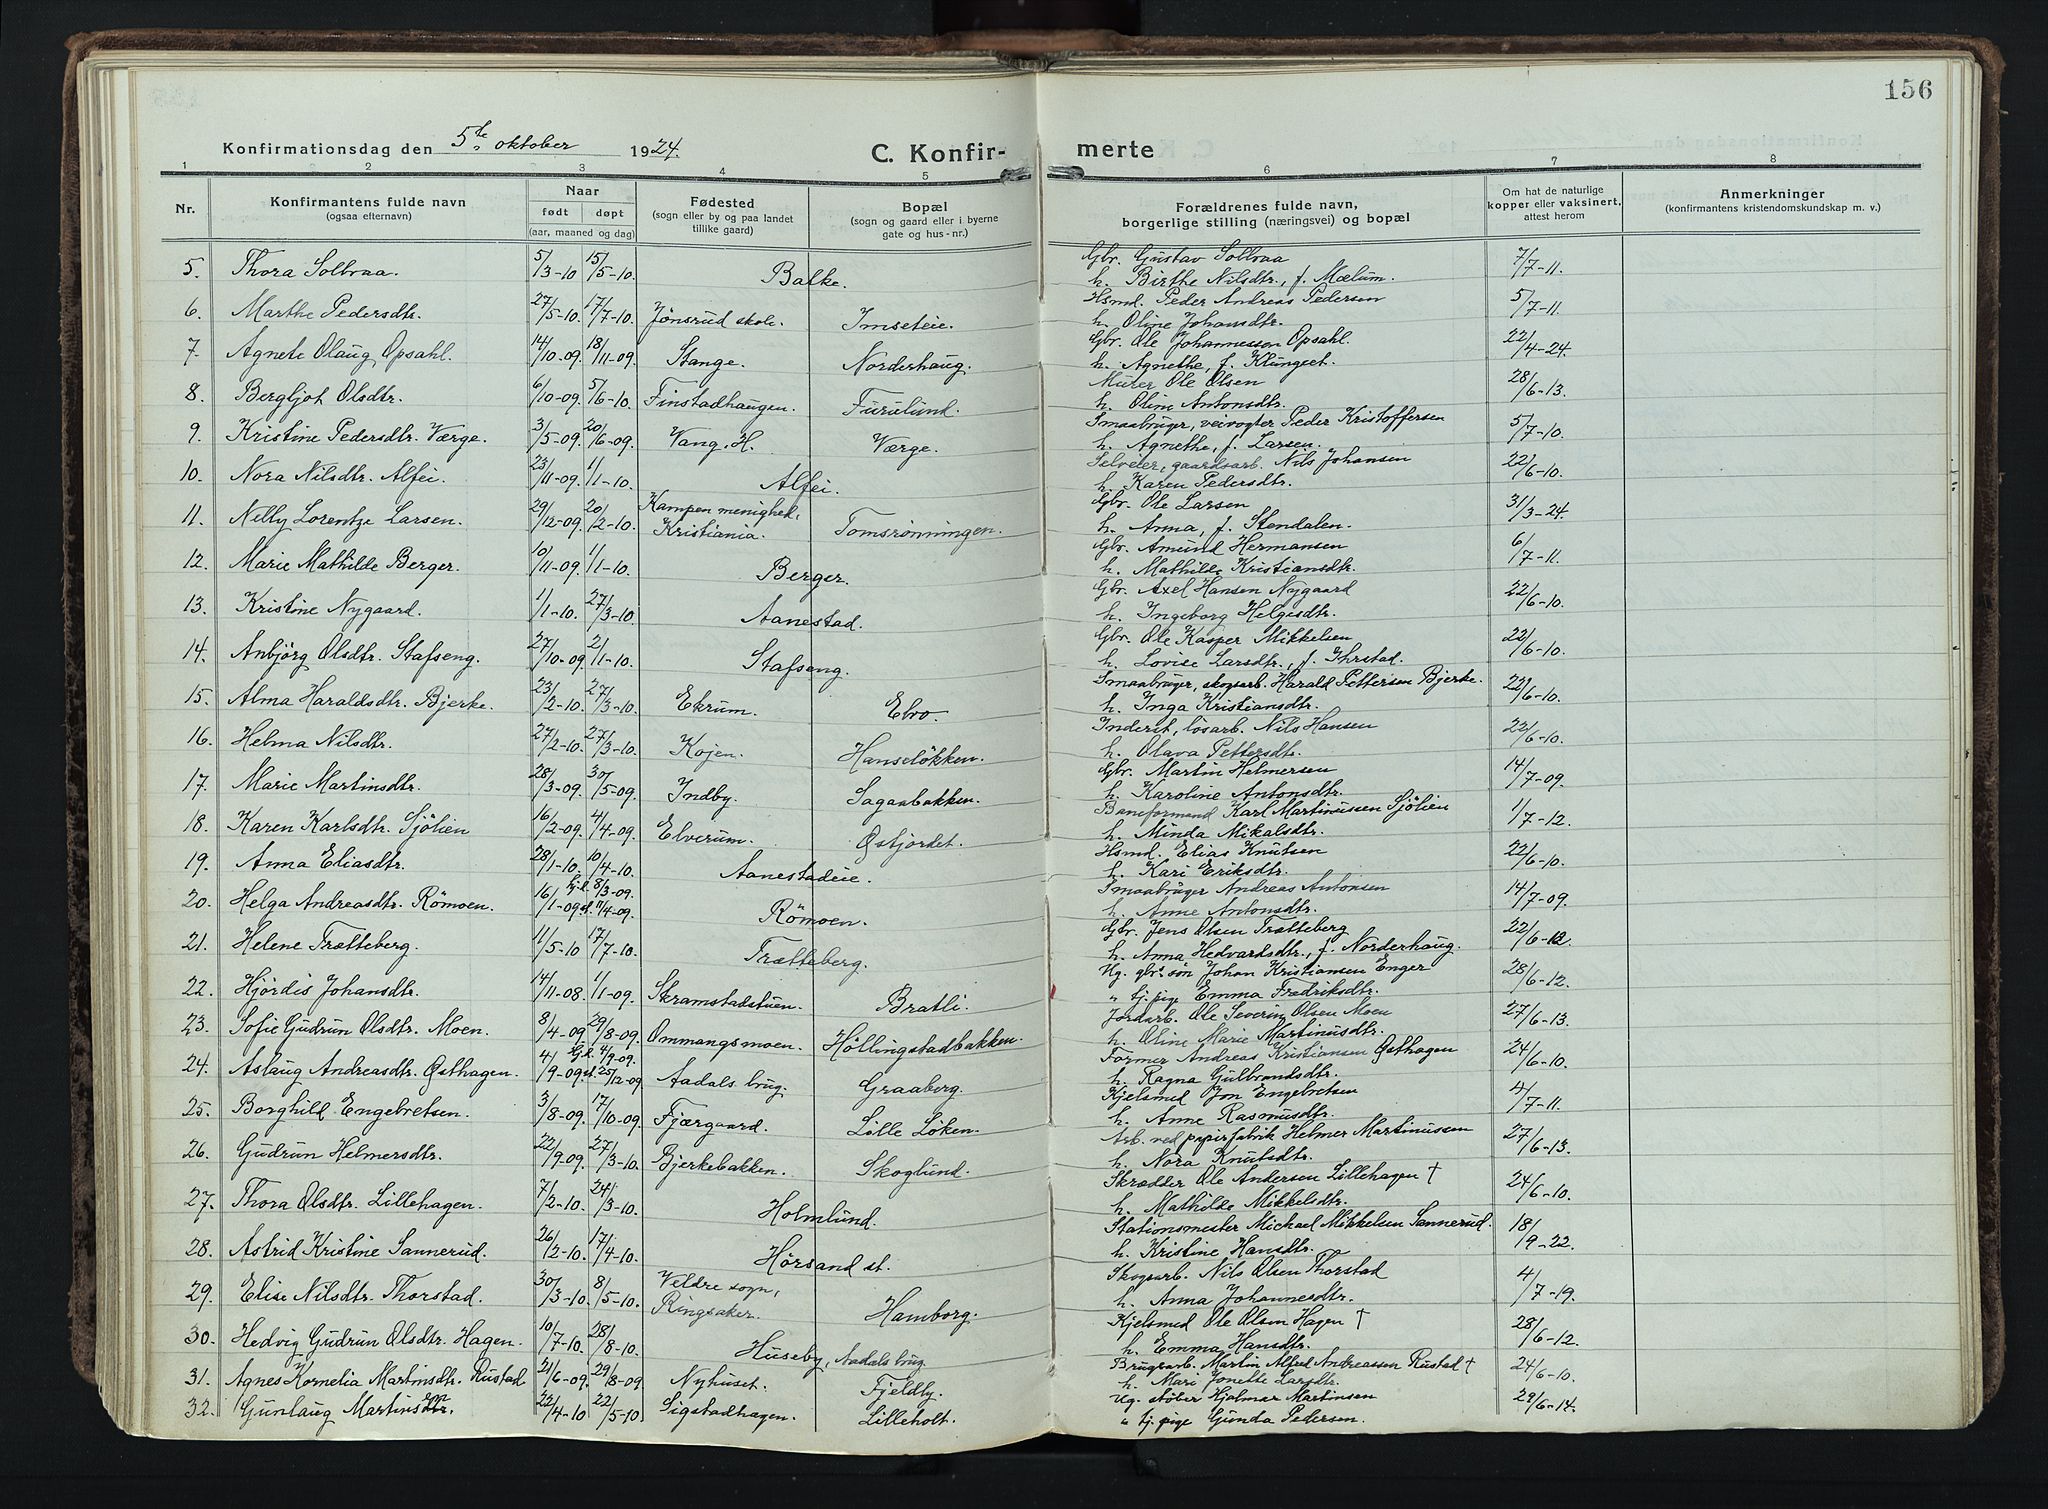 156
Konfirmationsdag den 5te oktober 1924.
C. Konfirmerte
1 2 3 4 5 6 7 8
Nr. Konfirmantens fulde navn (ogsaa efternavn) Naar født døpt (aar, maaned og dag) Fødested (sogn eller by og paa landet tillike gaard) Bopæl (sogn og gaard eller i byerne gate og hus-nr.) Forældrenes fulde navn, borgerlige stilling (næringsvei) og bopæl Om hat de naturlige kopper eller vaksinert, attest herom Anmerkninger (konfirmantens kristendomskundskap m. v.)
5. Thora Solbraa. 5/3-10 15/5-10. Bakke. Gbr. Gustav Solbraa 7/7-11.
h. Birthe Nilsdtr., f. Mælum.
6. Marthe Pedersdtr. 27/5-10. 17/7-10. Jønsrud skole. Imseteie. Hsmd. Peder Andreas Pedersen 5/7-11.
h. Oline Johansdtr.
7. Agnete Olaug Opsahl. 14/10-09. 18/11-09. Stange. Norderhaug. Gbr. Ole Johannessen Opsahl. 22/4-24.
h. Agnethe, f. Klungset.
8. Bergljot Olsdtr. 6/10-09. 5/6-10. Finstadhaugen. Furulund. Murer Ole Olsen 28/6-13.
h. Oline Antonsdtr.
9. Kristine Pedersdtr. Værge. 3/5-09. 20/6-09. Vang. H. Værge. Smaabruger, veivogter Peder Kristoffersen 5/7-10.
h. Agnethe, f. Larsen.
10. Nora Nilsdtr. Alfei. 23/11-09. 1/1-10. Alfei. Selveier, gaardsarb. Nils Johansen 22/6-10.
h. Karen Pedersdtr.
11. Nelly Lorentze Larsen. 29/12-09. 20/2-10. Kampen menighed, Kristiania. Tomsrønningen. Gbr. Ole Larsen 31/3-24.
h. Anna, f. Stendalen.
12. Marie Mathilde Berger. 10/11-09. 1/1-10. Berger. Gbr. Amund Hermansen 6/7-11.
h. Mathilde Kristiansdtr.
13. Kristine Nygaard. 1/1-10. 27/3-10. Aanestad. Gbr. Axel Hansen Nygaard 22/6-10.
h. Ingeborg Helgesdtr.
14. Anbjörg Olsdtr. Stafseng. 27/10-09. 2/1-10. Stafseng. Gbr. Ole Kasper Mikkelsen 22/6-10.
h. Lovise Larsdtr., f. Ihrstad.
15. Alma Haraldsdtr. Bjerke. 23/2-10. 27/3-10. Ekrum. Ebro. Smaabruger, skogsarb. Harald Pettersen Bjerke. 22/6-10.
h. Inga Kristiansdtr.
16. Helma Nilsdtr. 27/2-10. 27/3-10. Kojen. Hanseløkken. Inderst, løsarb. Nils Hansen 22/6-10.
h. Olava Pettersdtr.
17. Marie Martinsdtr. 28/3-09. 30/5-09. Indby. Sagaabakken. Gbr. Martin Helmersen 14/7-09.
h. Karoline Antonsdtr.
18. Karen Karlsdtr. Sjölien 16/2-09. 4/4-09. Elverum. Østjordet. Baneformand Karl Martinussen Sjölien 1/7-12.
h. Minda Mikalsdtr.
19. Anna Eliasdtr. 28/1-10. 10/4-10. Aanestadeie. Hsmd. Elias Knutsen 22/6-10.
h. Kari Eriksdtr.
20. Helga Andreasdtr. Römoen. 16/1-09. Hj.d. 8/3-09. st. 11/4-09. Römoen. Smaabruger Andreas Antonsen 14/7-09.
h. Anne Antonsdtr.
21. Helene Trætteberg. 11/5-10 17/7-10. Trætteberg. Gbr. Jens Olsen Trætteberg 22/6-12.
h. Anna Hedvardsdtr., f. Norderhaug.
22. Hjördis Johansdtr. 14/11-08. 1/1-09. Skramstadstuen. Bratli. Ug. gbr.s søn Johan Kristiansen Enger 28/6-12.
" tj.pige Emma Fredriksdtr.
23. Sofie Gudrun Olsdtr. Moen. 8/4-09. 29/8-09. Ommangsmoen. Höllingstadbakken. Jordarb. Ole Severin Olsen Moen 27/6-13.
h. Oline Marie Martinusdtr.
24. Aslaug Andreasdtr. Østhagen. 4/9-09. Hj.d. 4/9-09. st. 25/12-09. Aadals brug. Graaberg. Former Andreas Kristiansen Østhagen 24/6-10.
h. Ragna Gulbrandsdtr.
25. Borghild Engebretsen. 3/8-09. 17/10-09. Fjærgaard. Lille Løken. Kjelsmed Jon Engebretsen 4/7-11.
h. Anne Rasmusdtr.
26. Gudrun Helmersdtr. 22/9-09. 27/3-10. Bjerkebakken. Skoglund. Arb. ved papirfabrik Helmer Martinussen 27/6-13.
h. Nora Knutsdtr.
27. Thora Olsdtr. Lillehagen. 7/2-10. 24/3-10. Holmlund. Skrædder Ole Andersen Lillehagen † 24/6-10.
h. Mathilde Mikkelsdtr.
28. Astrid Kristine Sannerud. 26/2-10. 17/4-10. Hörsand st. Stationsmester Michael Mikkelsen Sannerud. 18/9-22.
h. Kristine Hansdtr.
29. Elise Nilsdtr. Thorstad. 30/3-10. 8/5-10. Veldre sogn, Ringsaker. Hamborg. Skogsarb. Nils Olsen Thorstad 4/7-19.
h. Anna Johannesdtr.
30. Hedvig Gudrun Olsdtr. Hagen. 10/7-10. 28/8-10. Huseby, Aadals brug. Kjelsmed Ole Olsen Hagen † 28/6-12.
h. Emma Hansdtr.
31. Agnes Kornelia Martinsdtr. Rustad 21/6-09. 29/8-09 Nyhuset. Fjeldby. Brugsarb. Martin Alfred Andreassen Rustad † 24/6-10.
h. Mari Jonette Larsdtr.
32. Gunlaug Martinsen. 22/4-10 22/5-10 Sigstadhagen. Lilleholt. Ug. støber Hjalmar Martinsen 29/6-14.
" tj. pige Gunda Pedersen.